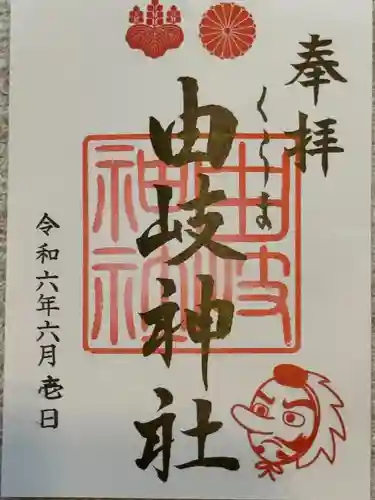 奉拝
くらま
由岐神社
由岐
神社
令和六年六月壱日